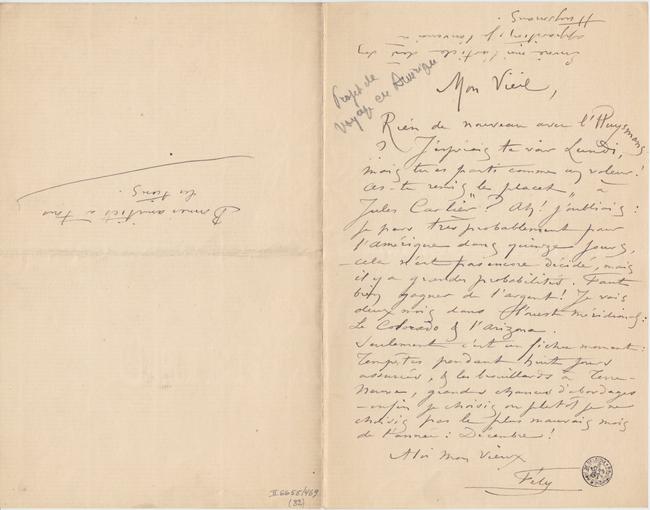 Mon Vieil,
Rien de nouveau avec l'Huysmans
? J'espérais te voir Lundi,
mais tu es parti comme un voleur!
as-tu remis „le placet„ à
Jules Cartier? Ah! j'oubliais:
je pars très probablement pour
l'amérique dans quinze jours,
– cela n'est pas encore décidé, mais
il y a grandes probabilités. Faut
bien gagner de l'argent! Je vais
deux mois dans l'ouest méridional:
Le Colorado & l'Arizona.
Seulement c'est un fichu moment:
Tempêtes pendant huit jours
assurées, & les brouillards à Terre-
Neuve, grandes chances d'abordages
– enfin je choisis ou plutôt je ne
choisis pas le plus mauvais mois
de l'année: Décembre!
A toi mon vieux
Fély
Projet de
voyage en Amérique
Envoie moi l'article dès
apparition, je l'enverrai à
Huysmans.
Bonnes amitiés à tous
les tiens.
II 6655/469
(32)